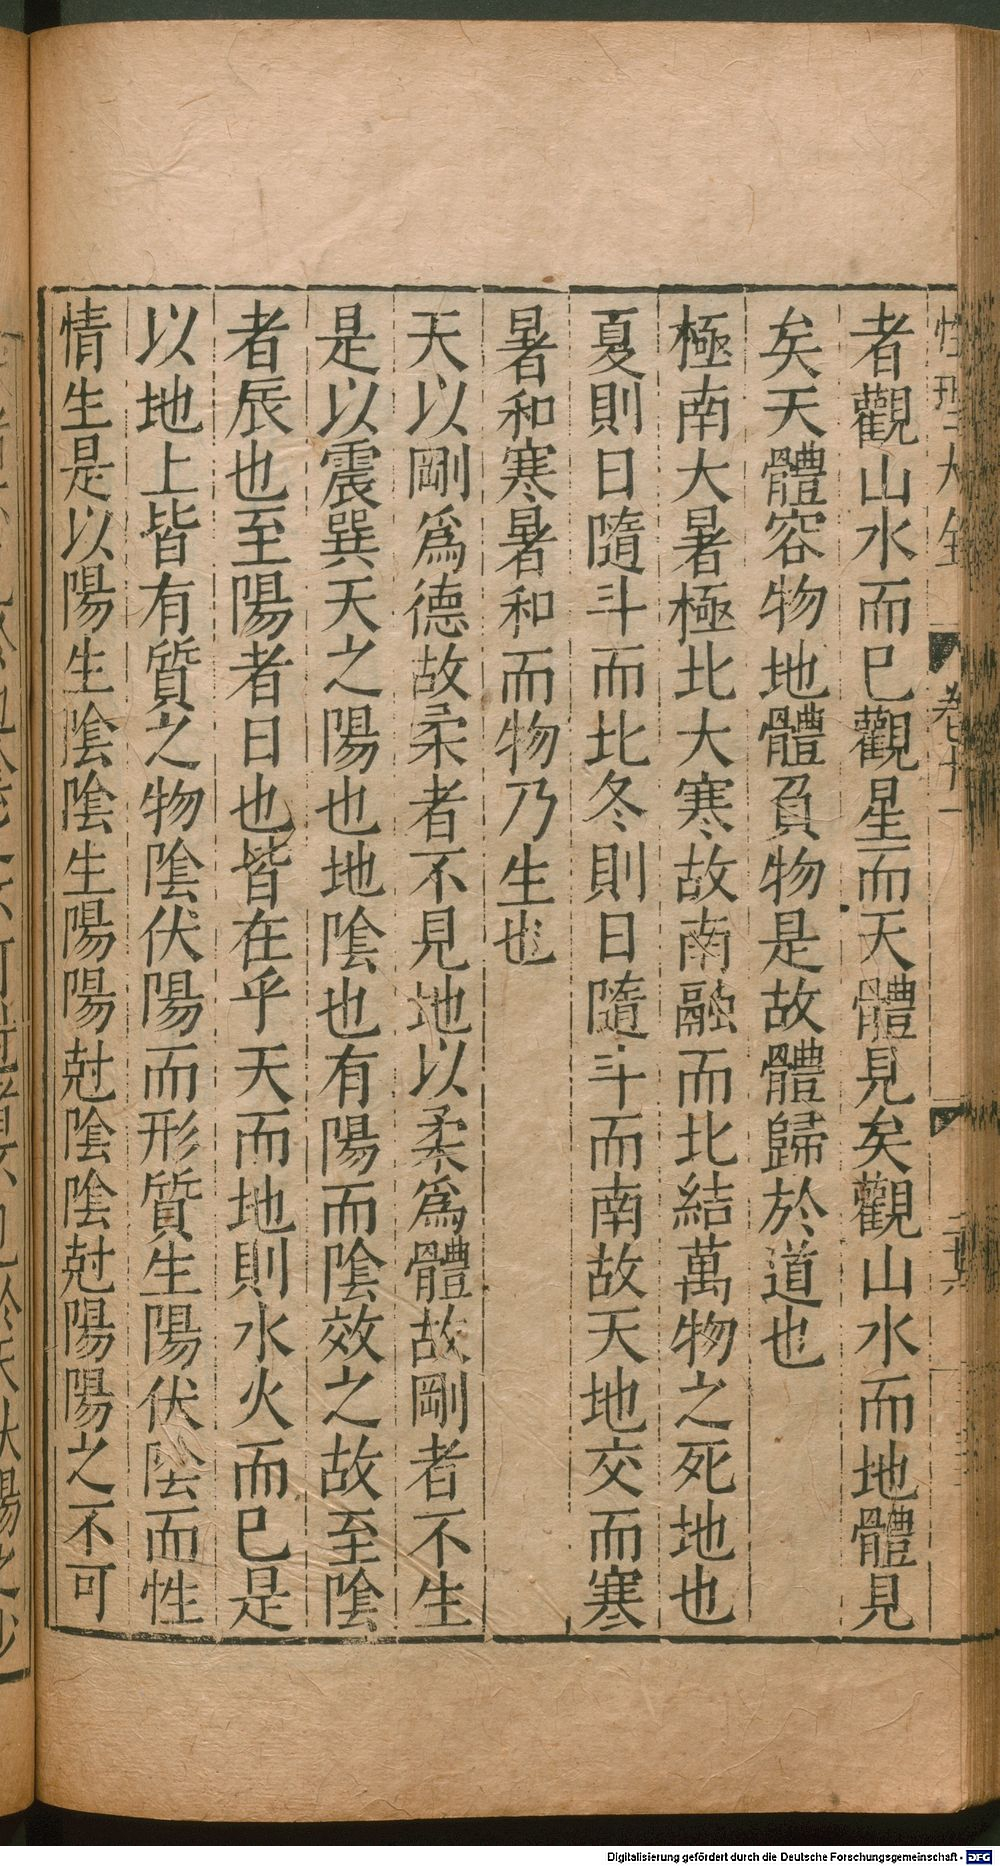 性理大全 卷十一 二十六
者觀山水而已觀星而天體見矣觀山水而地體見
矣天體容物地體負物是故體歸於道也
極南大暑極北大寒故南融而北結萬物之死地也
夏則日隨斗而北冬則日隨斗而南故天地交而寒
暑和寒暑和而物乃生也
天以剛爲德故柔者不見地以柔爲體故剛者不生
是以震巽天之陽也地陰也有陽而陰效之故至陰
者辰也至陽者日也皆在乎天而地則水火而已是
以地上皆有質之物陰伏陽而形質生陽伏陰而性
情生是以陽生陰陰生陽陽尅陰陰尅陽陽之不可
Digitalisierung gefördert durch die Deutsche Forschungsgemeinschaft - DFG